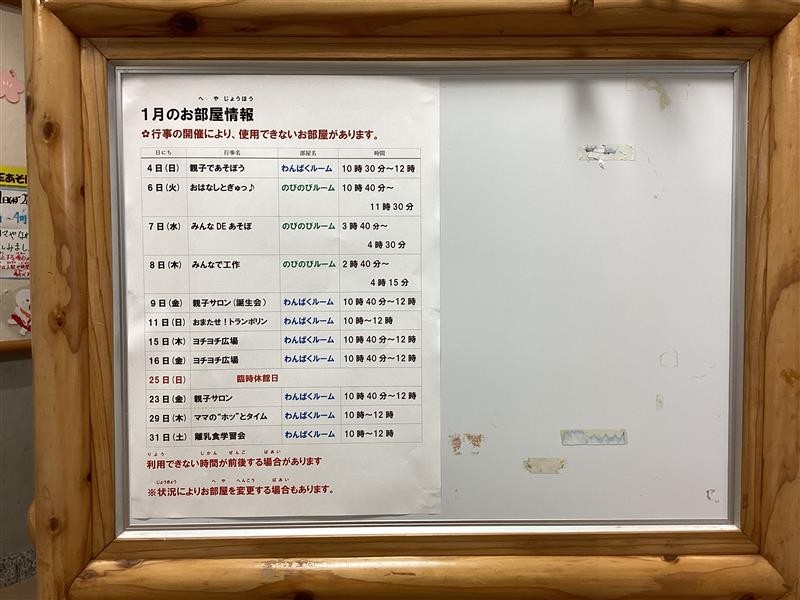 へ や じょうほう
1月のお部屋情報
✿行事の開催により、使用できないお部屋があります。
日にち 行事名 部屋名 時間
4日(日) 親子であそぼう わんぱくルーム 10時30分～12時
6日(火) おはなしとぎゅっ♪ のびのびルーム 10時40分～
11時30分
7日(水) みんなDEあそぼ のびのびルーム 3時40分～
4時30分
8日(木) みんなで工作 のびのびルーム 2時40分～
4時15分
9日(金) 親子サロン(誕生会) わんぱくルーム 10時40分～12時
11日(日) おまたせ!トランポリン わんぱくルーム 10時～12時
15日(木) ヨチヨチ広場 わんぱくルーム 10時40分～12時
16日(金) ヨチヨチ広場 わんぱくルーム 10時40分～12時
25日(日) 臨時休館日
23日(金) 親子サロン わんぱくルーム 10時40分～12時
29日(木) ママの"ホッ"とタイム わんぱくルーム 10時～12時
31日(土) 離乳食学習会 わんぱくルーム 10時～12時
りよう じかん ぜんご ばあい
利用できない時間が前後する場合があります
じょうきょう へや へんこう ばあい
※状況によりお部屋を変更する場合もあります。